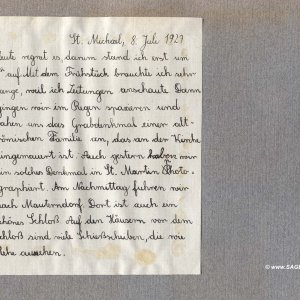 St. Michael, 8. Juli 1921
Heute regnet es darum stand ich erst um
auf. Mit dem Frühstück brauchte ich sehr
lange, weil ich Zeitungen anschaute Dann
gingen wir im Regen spazieren und
sahen uns das Grabdenkmal einer alt-
römischen Familie an, das an der Kirche
eingemauert ist. Auch gestern haben wir
ein solches Denkmal in St. Martin Photo-
graphiert. Am Nachmittag fuhren wir
nach Mauterndorf. Dort ist auch ein
schönes Schloß. Auf den Häusern vor dem
Schloß sind viele Schießscheiben, die wie
aussehen.